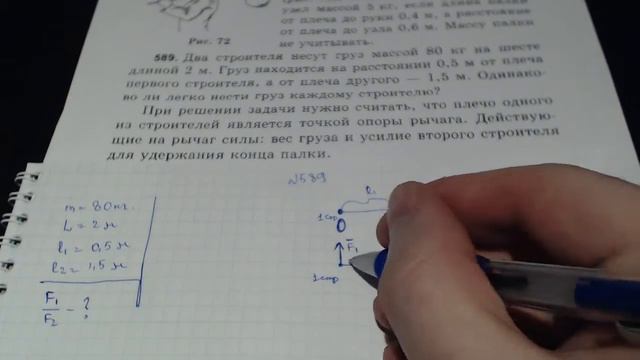 узел массой 5 кг, если длина палки
от плеча до руки 0,4 м, а расстояние
от плеча до узла 0,6 м. Массу палки
не учитывать.
Рис. 72
589. Два строителя несут груз массой 80 кг на шесте
длиной 2 м. Груз находится на расстоянии 0,5 м от плеча
первого строителя, а от плеча другого — 1,5 м. Одинако-
во ли легко нести груз каждому строителю?
При решении задачи нужно считать, что плечо одного
из строителей является точкой опоры рычага. Действую-
щие на рычаг силы: вес груза и усилие второго строителя
для удержания конца палки.
№589
m = 80кг.
L = 2м
l1 = 0,5м
l2 = 1,5м
F1
F2 - ?
l1
1стр
O
F1
1стр